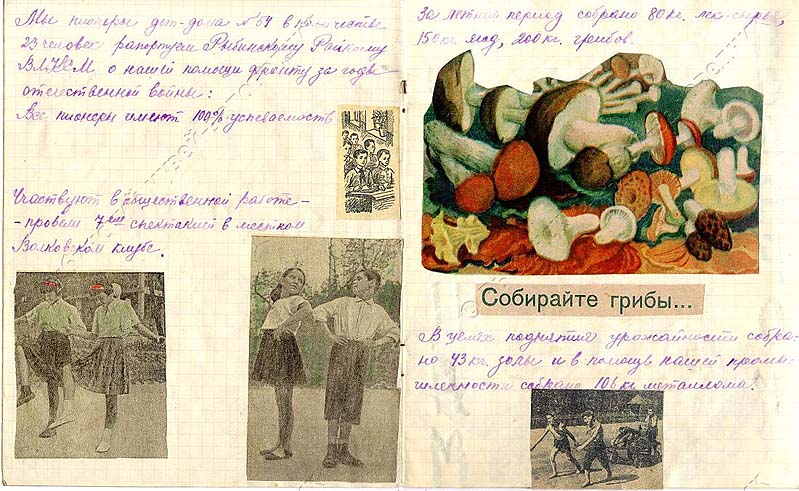 Мы пионеры дет-дома №64 в количестве
23 человек рапортуем Рыбинскому Райкому
ВЛКСМ о нашей помощи фронту за годы
отечественной войны:
Все пионеры имеют 100% успеваемость
Участвуют в общественной работе -
- провели 7 спектаклей в местном
Волковском клубе.
За летний период собрано 80 кг. лек-сырья,
150 кг. ягод, 200 кг. грибов.
Собирайте грибы...
В целях поднятия урожайности собра-
но 43 кг. золы и в помощь нашей промы-
шленности собрано 106 кг металлома.